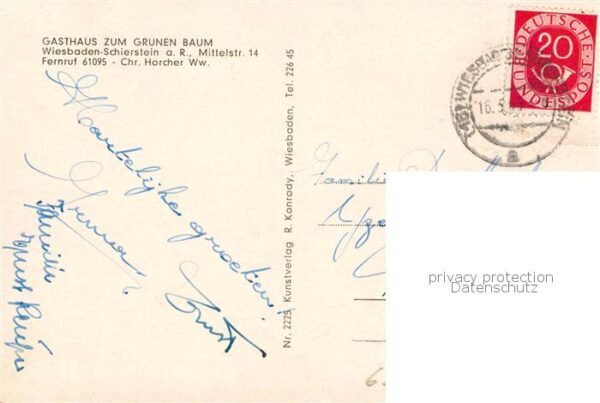 GASTHAUS ZUM GRUNEN BAUM
Wiesbaden-Schierstein a. R., Mittelstr. 14
Fernruf 61095 - Chr. Horcher Ww.
Hartelijke groeten
Ernst
Familie
Nr. 2225 Kunstverlag R. Konrady, Wiesbaden, Tel. 226 45
DEUTSCHE BUNDESPOST
20
WIESBADEN
16.
a
Familie
privacy protection
Datenschutz